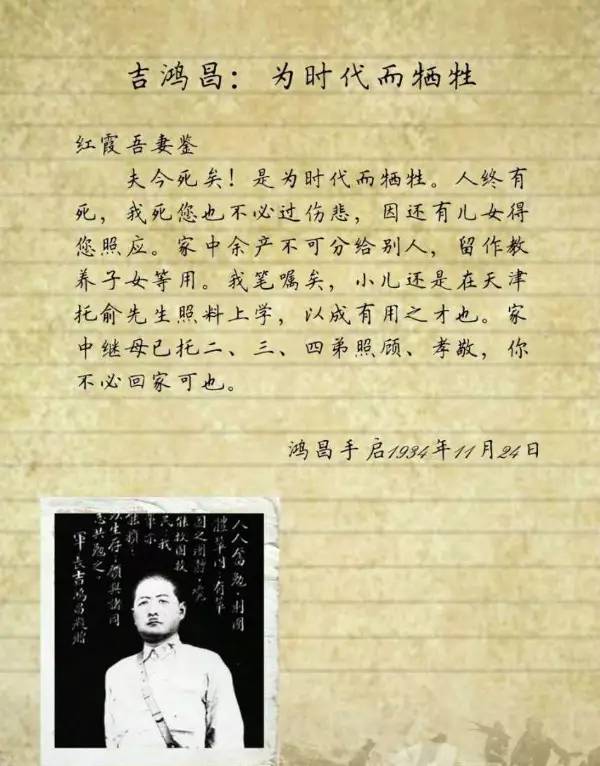 吉鸿昌：为时代而牺牲
红霞吾妻鉴
夫今死矣！是为时代而牺牲。人终有
死，我死您也不必过伤悲，因还有儿女得
您照应。家中余产不可分给别人，留作教
养子女等用。我笔嘱矣，小儿还是在天津
托俞先生照料上学，以成有用之才也。家
中继母已托二、三、四弟照顾、孝敬，你
不必回家可也。
鸿昌手启1934年11月24日
人人奋勉·则国
國之
能救國救
民·我
以生存·願與諸同
志共勉之
軍長吉鴻昌